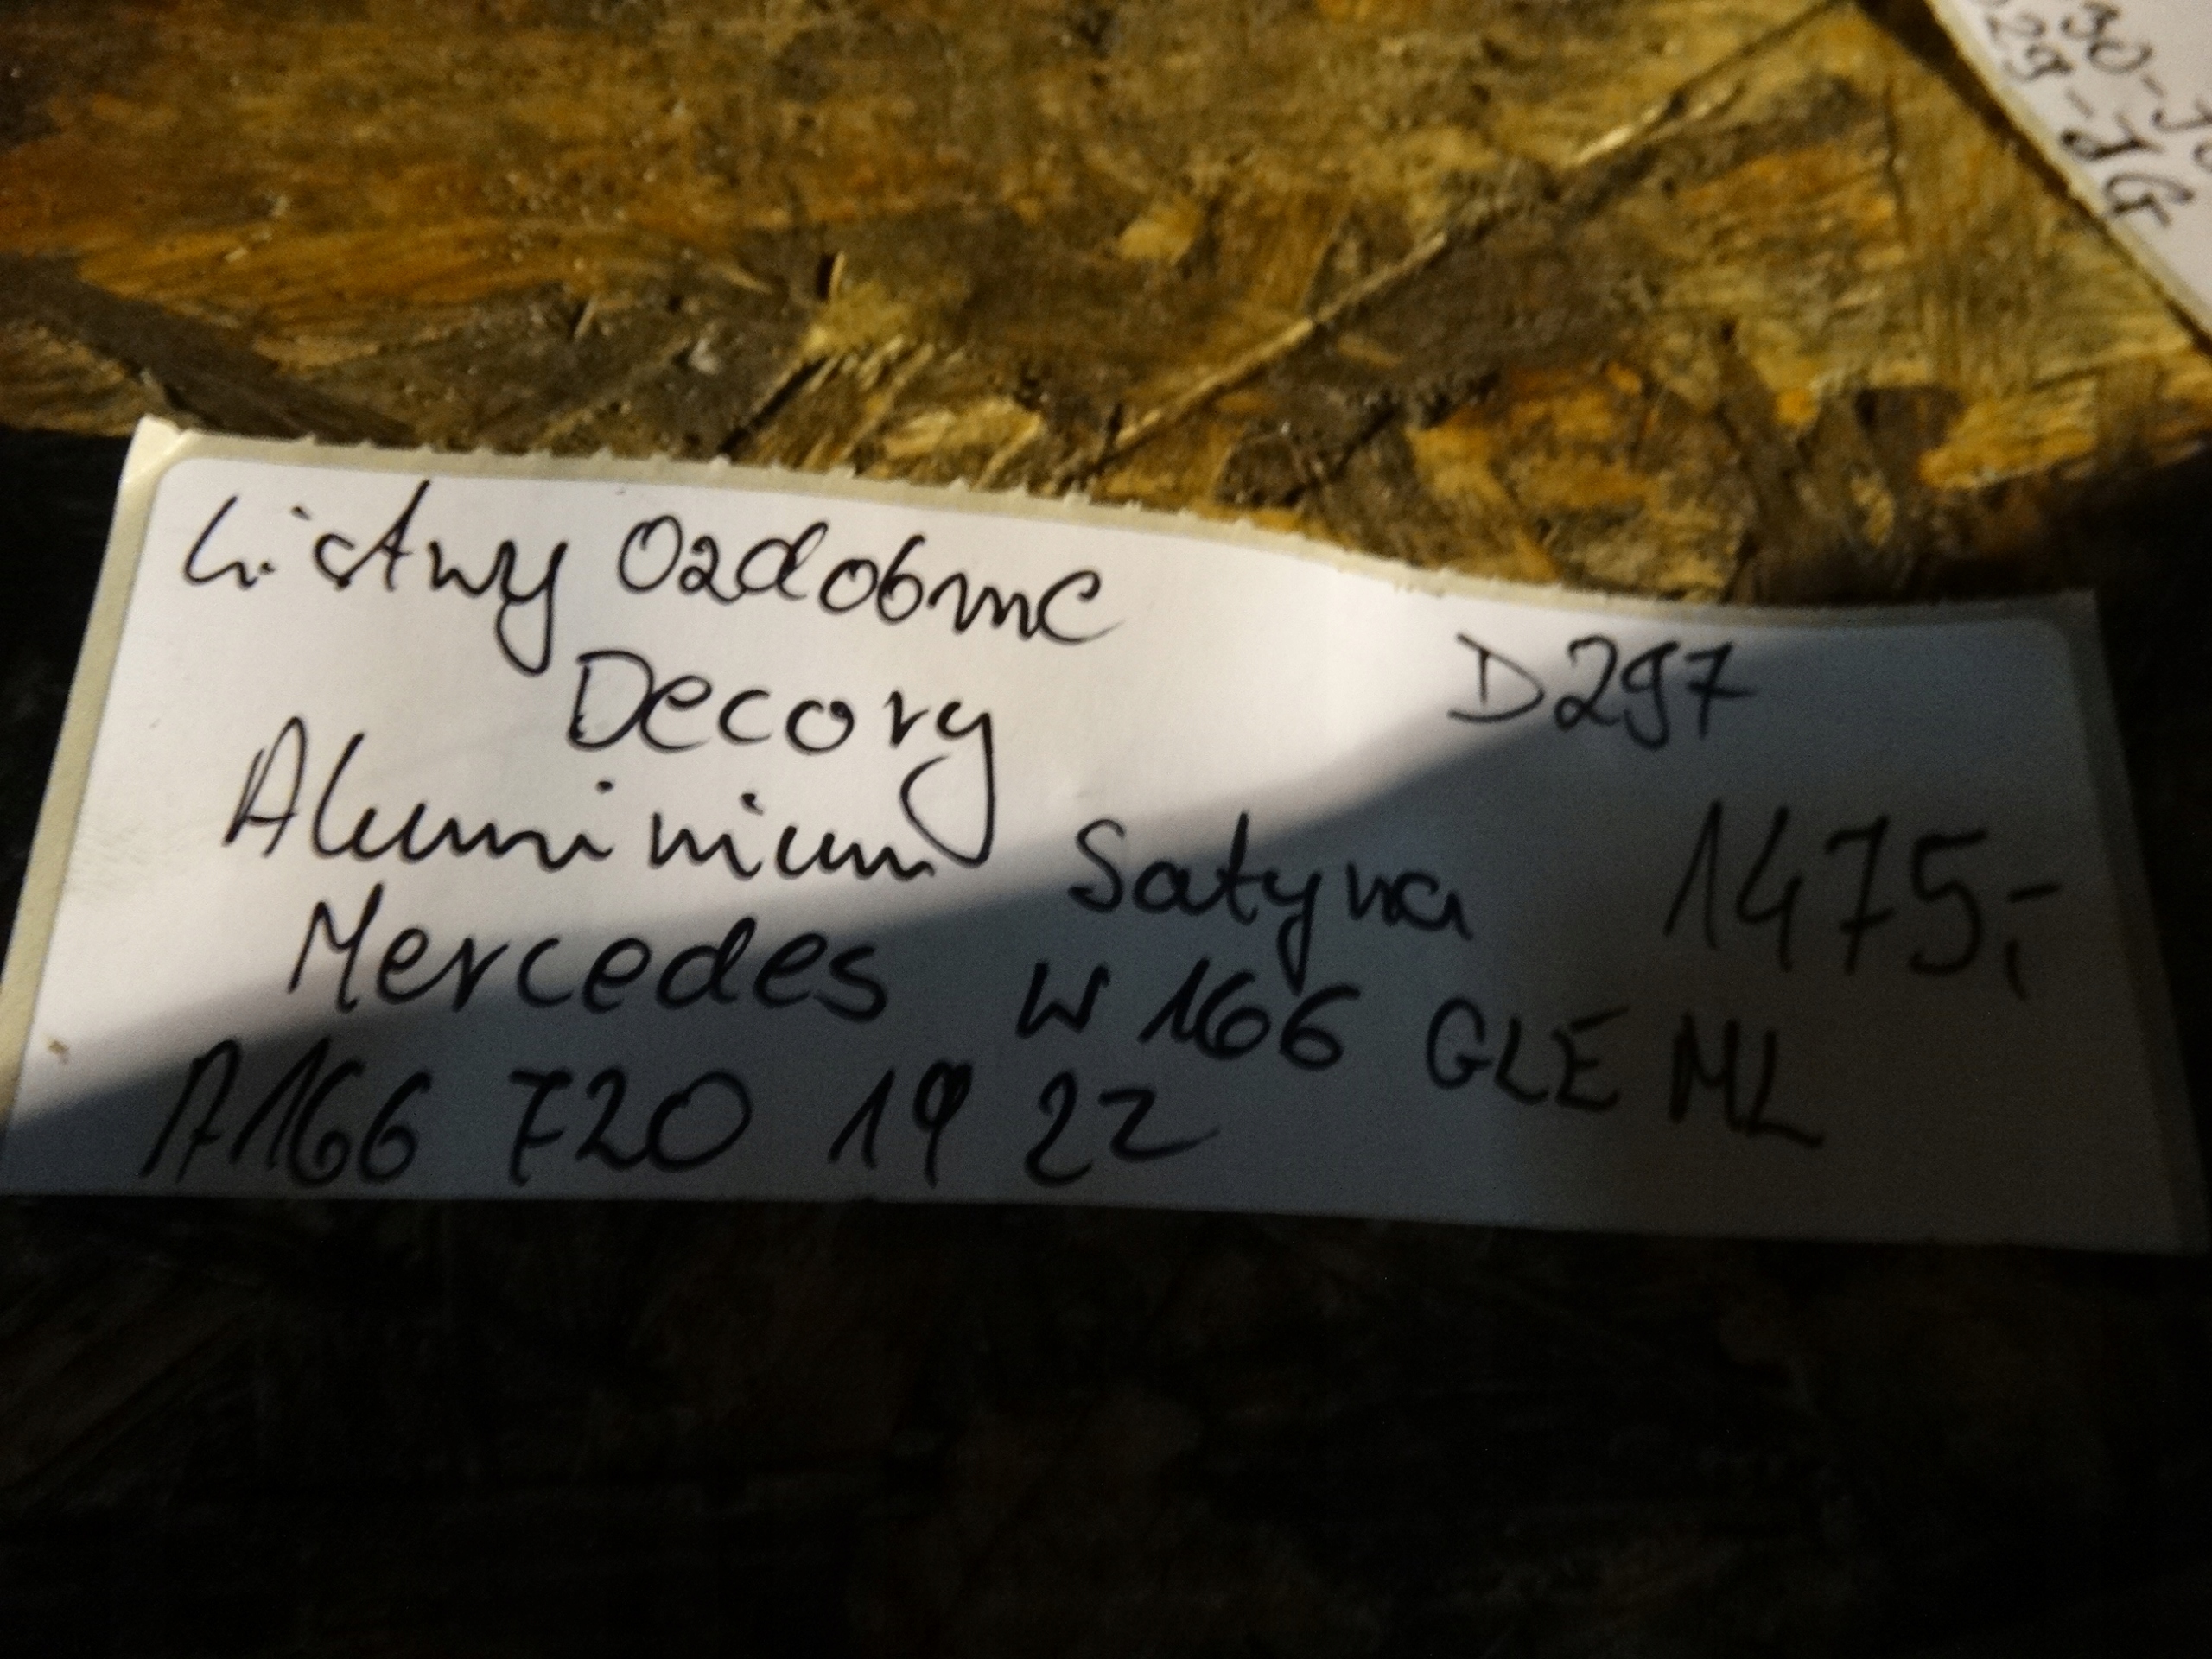 Listwy Ozdobne
Decory D297
Aluminium Satyna 1475,-
Mercedes W166 GLE ML
A166 720 19 22
30-J
229-JG